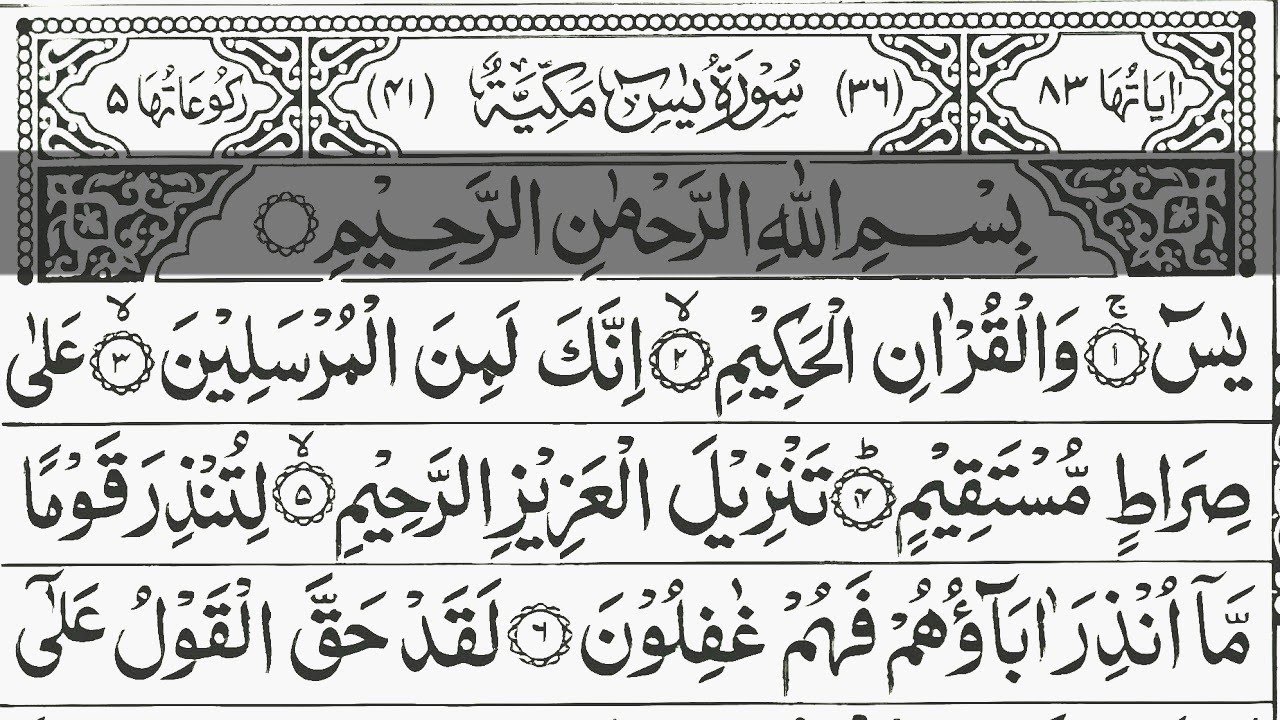 اٰيَاتُهَا ٨٣ (٣٦) سُوْرَةُ يٰسٓ مَكِّيَّةٌ (٤١) رُكُوْعَاتُهَا ٥
بِسْمِ اللهِ الرَّحْمٰنِ الرَّحِيْمِ
يٰسٓ ۚ ١ وَالْقُرْاٰنِ الْحَكِيْمِ ۙ ٢ اِنَّكَ لَمِنَ الْمُرْسَلِيْنَ ۙ ٣ عَلٰى
صِرَاطٍ مُّسْتَقِيْمٍ ؕ ۴ تَنْزِيْلَ الْعَزِيْزِ الرَّحِيْمِ ۙ ۵ لِتُنْذِرَ قَوْمًا
مَّآ اُنْذِرَ اٰبَآؤُهُمْ فَهُمْ غٰفِلُوْنَ ۶ لَقَدْ حَقَّ الْقَوْلُ عَلٰٓى